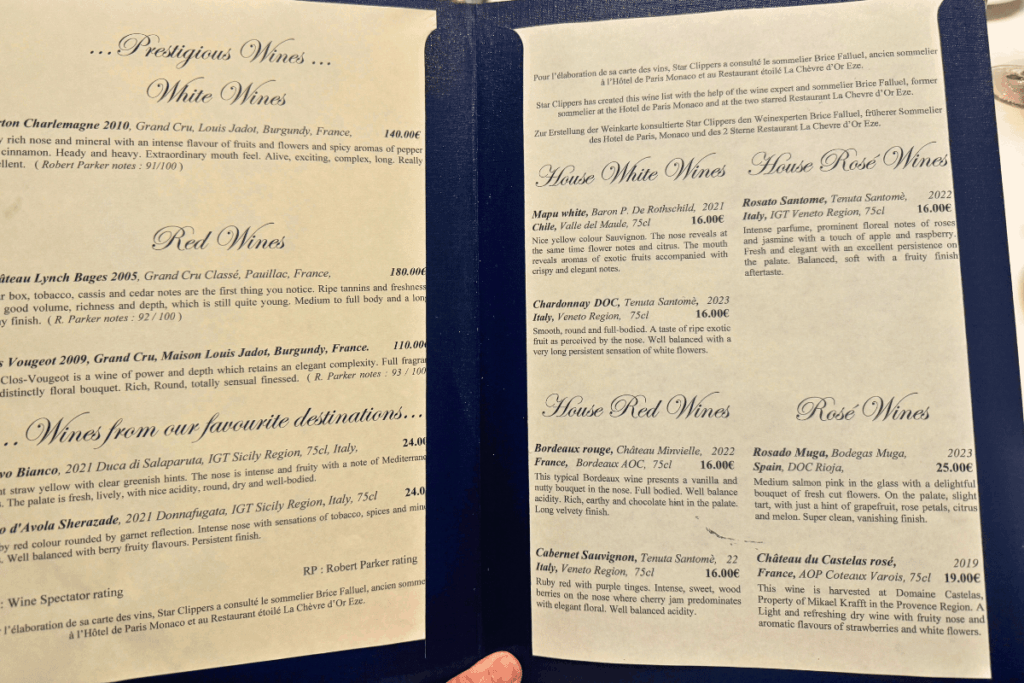 ...Prestigious Wines ...
White Wines
rton Charlemagne 2010, Grand Cru, Louis Jadot, Burgundy, France, 140.00€
y rich nose and mineral with an intense flavour of fruits and flowers and spicy aromas of pepper
cinnamon. Heady and heavy. Extraordinary mouth feel. Alive, exciting, complex, long. Really
ellent. ( Robert Parker notes : 91/100 )
Red Wines
âteau Lynch Bages 2005, Grand Cru Classé, Pauillac, France, 180.00€
r box, tobacco, cassis and cedar notes are the first thing you notice. Ripe tannins and freshness
good volume, richness and depth, which is still quite young. Medium to full body and a long
y finish. ( R. Parker notes : 92 / 100 )
s Vougeot 2009, Grand Cru, Maison Louis Jadot, Burgundy, France. 110.00
Clos-Vougeot is a wine of power and depth which retains an elegant complexity. Full fragran
distinctly floral bouquet. Rich, Round, totally sensual finessed. ( R. Parker notes : 93 / 100
.. Wines from our favourite destinations...
vo Bianco, 2021 Duca di Salaparuta, IGT Sicily Region, 75cl, Italy, 24.00
t straw yellow with clear greenish hints. The nose is intense and fruity with a note of Mediterrane
. The palate is fresh, lively, with nice acidity, round, dry and well-bodied.
o d'Avola Sherazade, 2021 Donnafugata, IGT Sicily Region, Italy, 75cl 24.0
by red colour rounded by garnet reflection. Intense nose with sensations of tobacco, spices and mine
. Well balanced with berry fruity flavours. Persistent finish.
RP : Robert Parker rating
: Wine Spectator rating
r l'élaboration de sa carte des vins, Star Clippers a consulté le sommelier Brice Falluel, ancien somme
à l'Hôtel de Paris Monaco et au Restaurant étoilé La Chèvre d'Or Eze.
Pour l'élaboration de sa carte des vins, Star Clippers a consulté le sommelier Brice Falluel, ancien sommelier
à l'Hôtel de Paris Monaco et au Restaurant étoilé La Chèvre d'Or Eze.
Star Clippers has created this wine list with the help of the wine expert and sommelier Brice Falluel, former
sommelier at the Hotel de Paris Monaco and at the two starred Restaurant La Chevre d'Or Eze.
Zur Erstellung der Weinkarte konsultierte Star Clippers den Weinexperten Brice Falluel, früherer Sommelier
des Hotel de Paris, Monaco und des 2 Sterne Restaurant La Chevre d'Or Eze.
House White Wines
Mapu white, Baron P. De Rothschild, 2021
Chile, Valle del Maule, 75cl 16.00€
Nice yellow colour Sauvignon. The nose reveals at
the same time flower notes and citrus. The mouth
reveals aromas of exotic fruits accompanied with
crispy and elegant notes.
Chardonnay DOC, Tenuta Santomè, 2023
Italy, Veneto Region, 75cl 16.00€
Smooth, round and full-bodied. A taste of ripe exotic
fruit as perceived by the nose. Well balanced with a
very long persistent sensation of white flowers.
House Rosé Wines
Rosato Santome, Tenuta Santomè, 2022
Italy, IGT Veneto Region, 75cl 16.00€
Intense parfume, prominent floral notes of roses
and jasmine with a touch of apple and raspberry.
Fresh and elegant with an excellent persistence on
the palate. Balanced, soft with a fruity finish
aftertaste.
House Red Wines
Bordeaux rouge, Château Minvielle, 2022
France, Bordeaux AOC, 75cl 16.00€
This typical Bordeaux wine presents a vanilla and
nutty bouquet in the nose. Full bodied. Well balance
acidity. Rich, earthy and chocolate hint in the palate.
Long velvety finish.
Cabernet Sauvignon, Tenuta Santomè, 22
Italy, Veneto Region, 75cl 16.00€
Ruby red with purple tinges. Intense, sweet, wood
berries on the nose where cherry jam predominates
with elegant floral. Well balanced acidity.
Rosé Wines
Rosado Muga, Bodegas Muga, 2023
Spain, DOC Rioja, 25.00€
Medium salmon pink in the glass with a delightful
bouquet of fresh cut flowers. On the palate, slight
tart, with just a hint of grapefruit, rose petals, citrus
and melon. Super clean, vanishing finish.
Château du Castelas rosé, 2019
France, AOP Coteaux Varois, 75cl 19.00€
This wine is harvested at Domaine Castelas,
Property of Mikael Krafft in the Provence Region. A
Light and refreshing dry wine with fruity nose and
aromatic flavours of strawberries and white flowers.